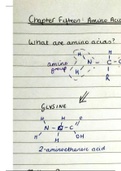 Chapter Fifteen: Amino Acid
What are amino acids?
H
amino
group
N - C - C
H
R
GLYSINE
H H O
N - C - C
H H OH
2-aminoethanoic acid